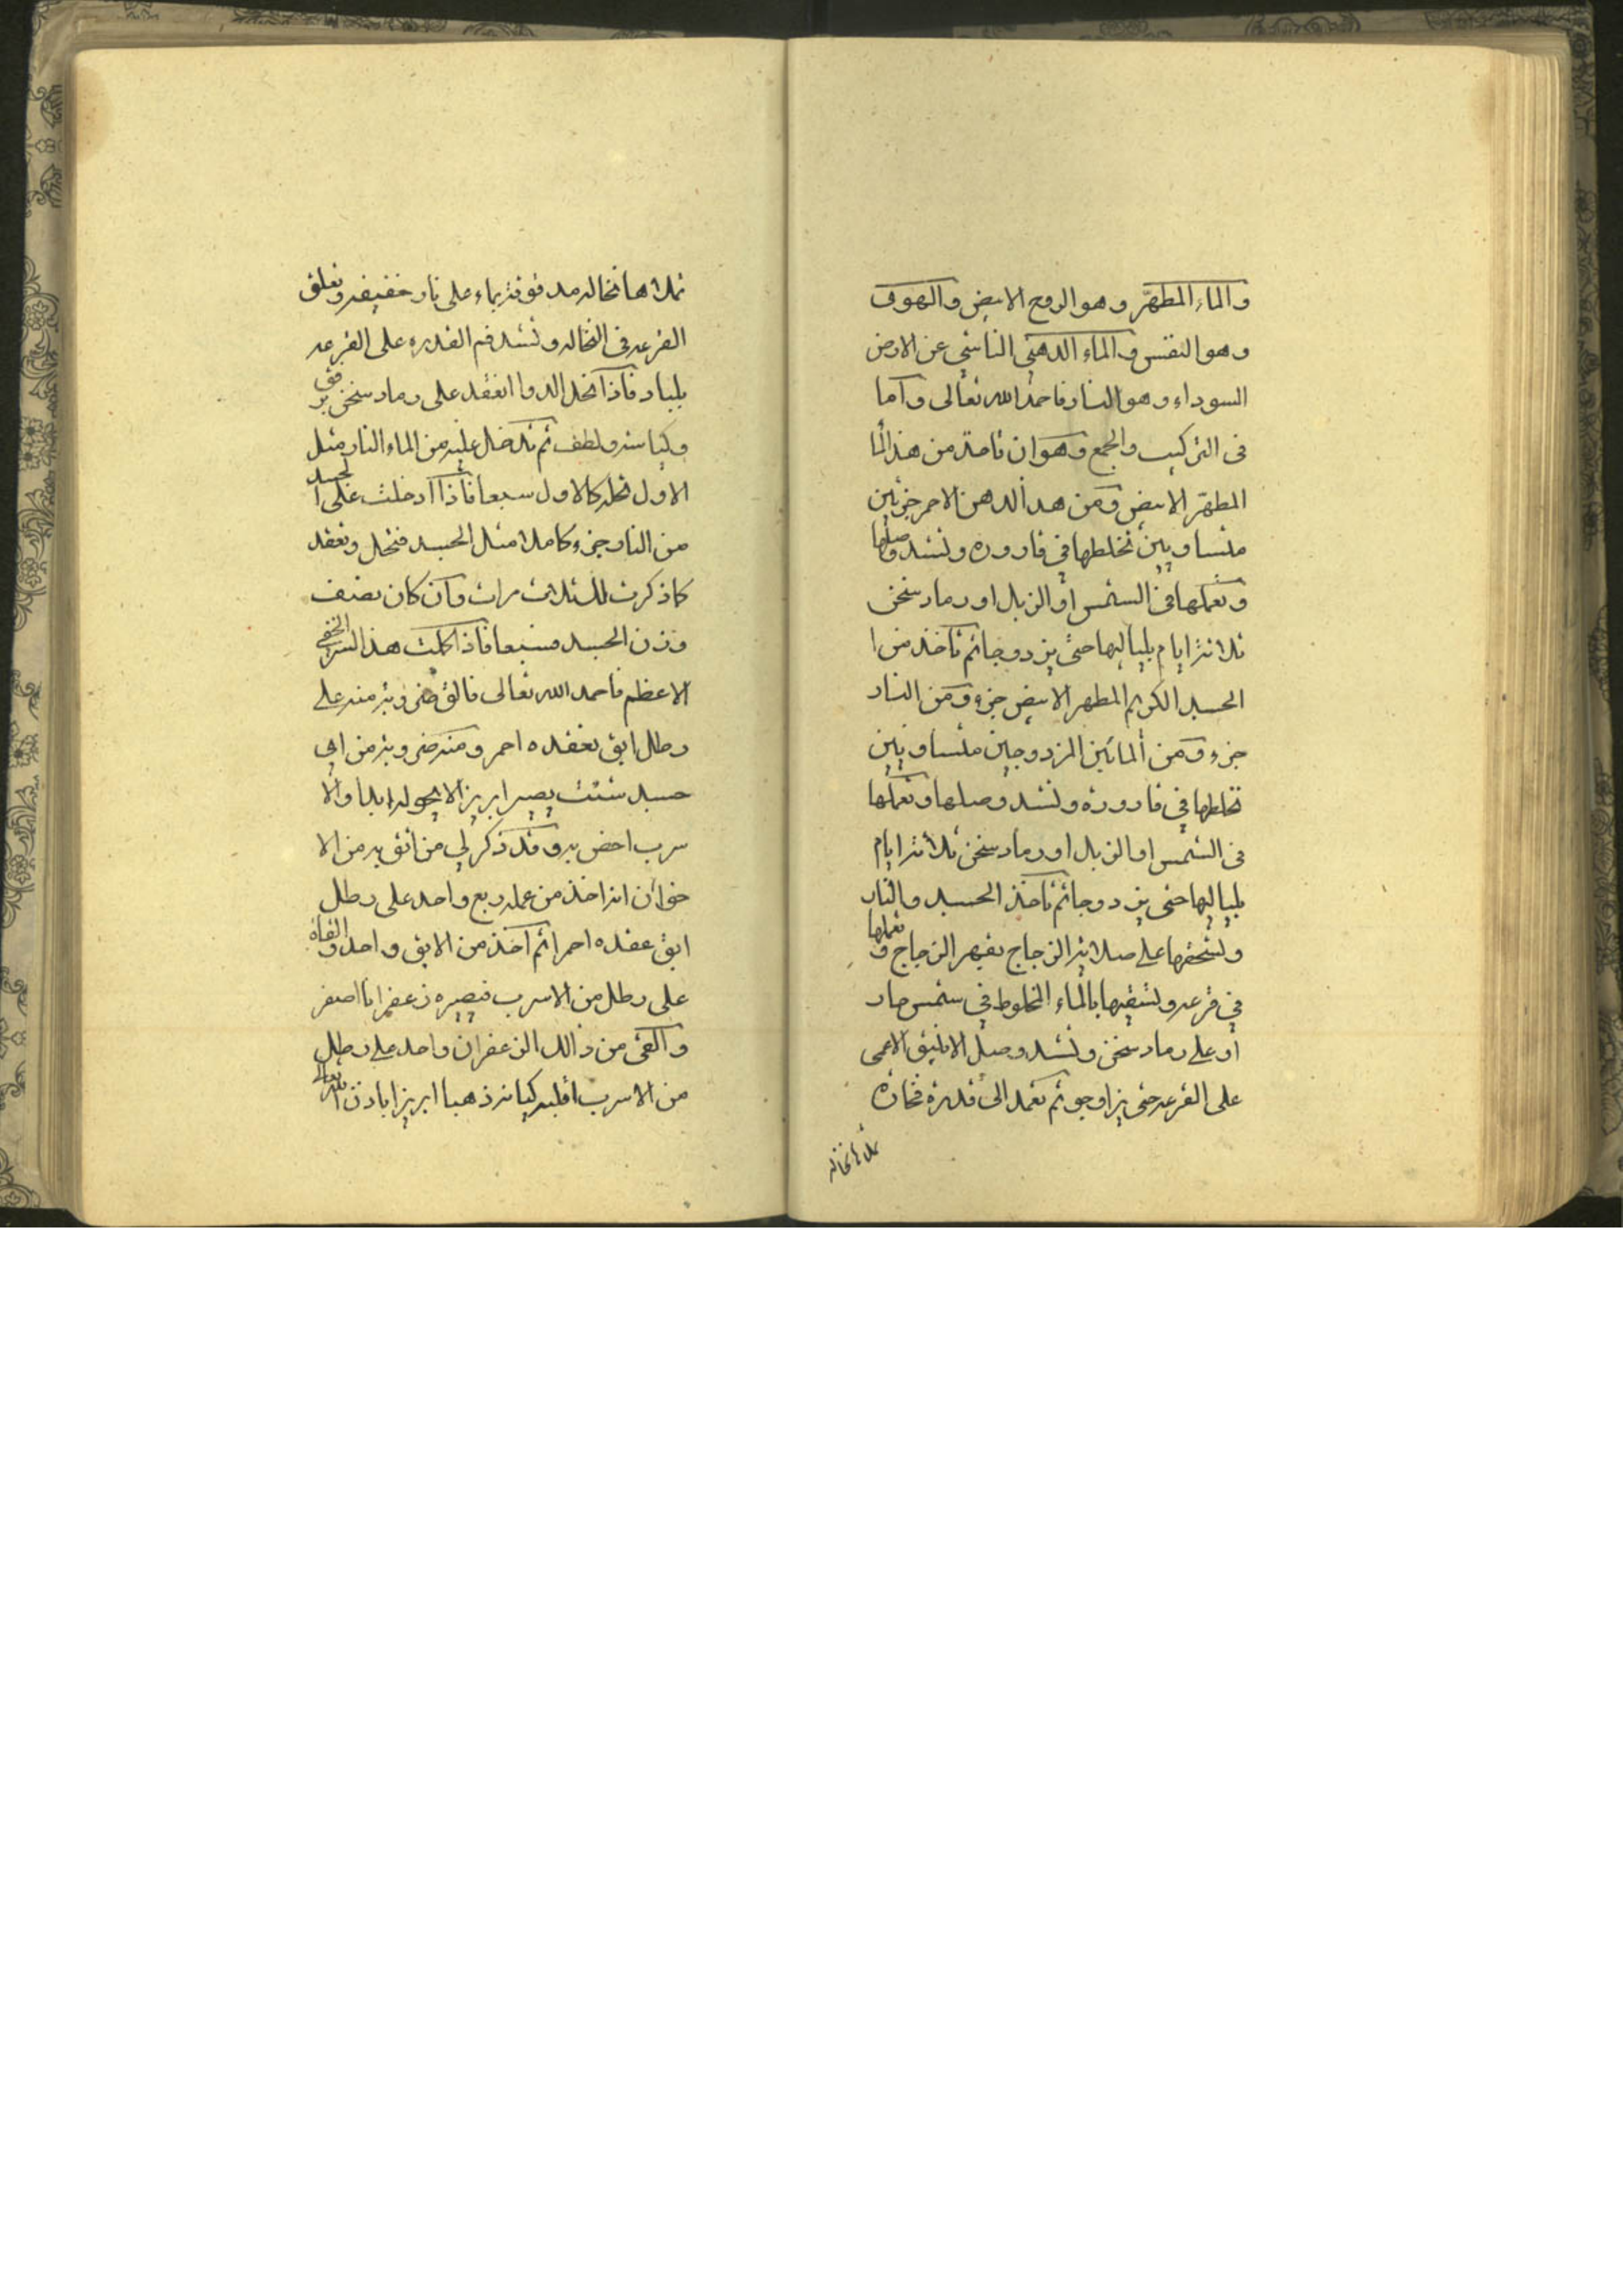 والماء المطهّر وهو الروح الابيض والهوى
وهو النفس والماء الدهني الناشي عن الارض
السوداء وهو النار فاحمد الله تعالى واما
فى التركيب والجمع وهو ان تاخذ من هذا الما
المطهّر الابيض ومن هذا الدهن الاحمر جزئين
متساويين تخلطها في قارورة وتشد وصلها
وتعملها في الشمس او الزبل او رماد سخن
ثلاثة ايام بلياليها حتى يزدوجا ثم تاخذ من ا
الجسد الكريم المطهر الابيض جزء ومن النار
جزء ومن المائين المزدوجين متساويين
تخلطها في قارورة وتشد وصلها وتعملها
في الشمس او الزبل او رماد سخن ثلاثة ايام
بلياليها حتى يزدوجا ثم تاخذ الجسد والنار
وتسحقها على صلاية الزجاج بفهر الزجاج و تعملها
في قرعه وتسقيها بالماء المخلوط في شمس حار
او على رماد سخن وتشد وصل الانبيق الاعمى
على القرعه حتى يزاوجو ثم تعمد الى قدرة فخاره
تملاها نخاله
تملاها نخاله مدقوقة بماء على نار خفيفه وتعلق
القرعه فى النخاله وتشد فم القدره على القرعه
بلباد فاذا انحل الدوا انعقد على رماد سخن برفق
وكياسه ولطف ثم تدخل عليه من الماء النار مثل
الاول تحله كالاول سبعا فاذا ادخلت على الجسد
من النار جزء كاملا مثل الجسد فتحل وتعقد
كما ذكرت لك ثلاث مرات وان كان نصف
وزن الجسد فسبعا فاذا اكملت هذا السر الخفي
الاعظم فاحمد الله تعالى فالق ضروبة منه على
رطل ابق تعقده احمر ومنه ضروبة من اي
جسد شئت يصير ابريزا لا يحول ابدا والا
سرب اخص به وقد ذكر لي من اثق به من الا
خوان انه اخذ من عمله ربع واحد على رطل
ابق عقده احمرا ثم اخذ من الابق واحد و القاه
على رطل من الاسرب فصيره زعفرانا اصفر
والقى من ذالك الزعفران واحد على رطل
من الاسرب اقلبه كيانه ذهبا ابريزا باذن الله تعالى